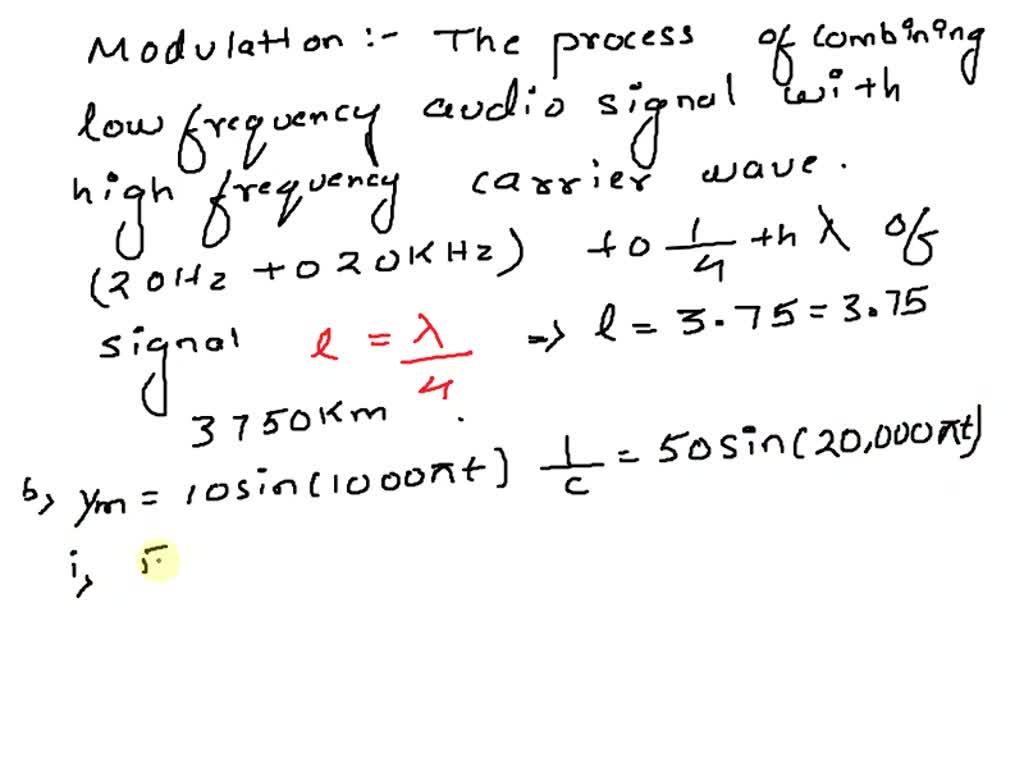 Modulation :- The process of combining
low frequency audio signal with
high frequency carrier wave.
(20Hz to 20KHz) to 1/4 th λ of
signal l = λ/4 → l = 3.75 = 3.75
3750Km .
b, ym = 10sin(1000πt) 1/c = 50sin(20,000πt)
i,